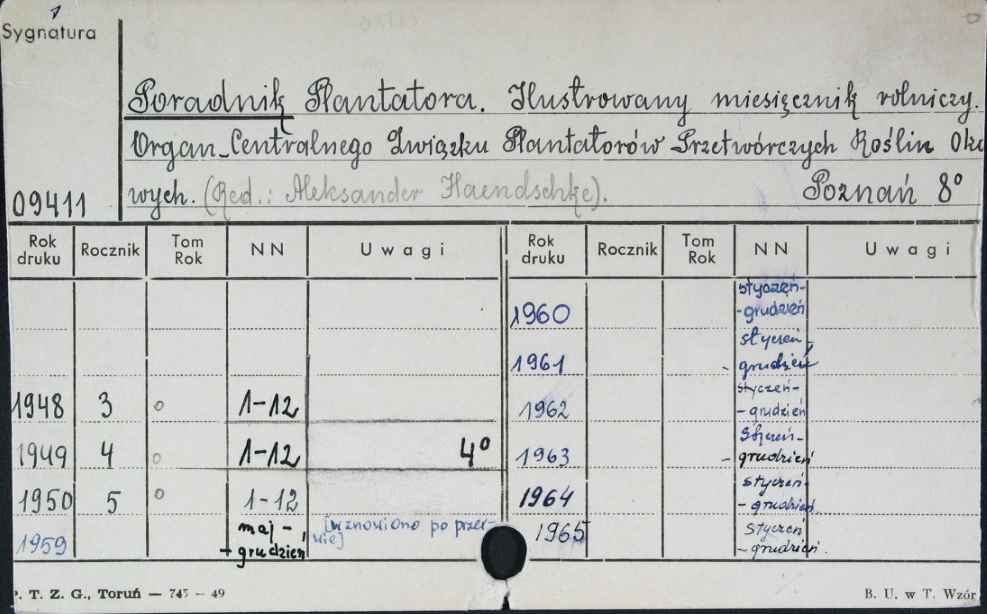 Sygnatura
Poradnik Plantatora. Ilustrowany miesięcznik rolniczy.
Organ Centralnego Związku Plantatorów Przetwórczych Roślin Oko
09411 wych. (Red.: Aleksander Haendschke). Poznań 8°
Rok druku Rocznik Tom Rok NN Uwagi Rok druku Rocznik Tom Rok NN Uwagi
1960 styczeń-
-grudzień
1961 styczeń -
- grudzień
1948 3 ° 1-12 1962 styczeń-
-grudzień
1949 4 ° 1-12 4° 1963 styczeń-
- grudzień
1950 5 ° 1-12 1964 styczeń-
- grudzień
1959 maj - [wznowiono po przer- 1965 styczeń
- grudzień wie] - grudzień.
P. T. Z. G., Toruń — 745 - 49 B. U. w T. Wzór